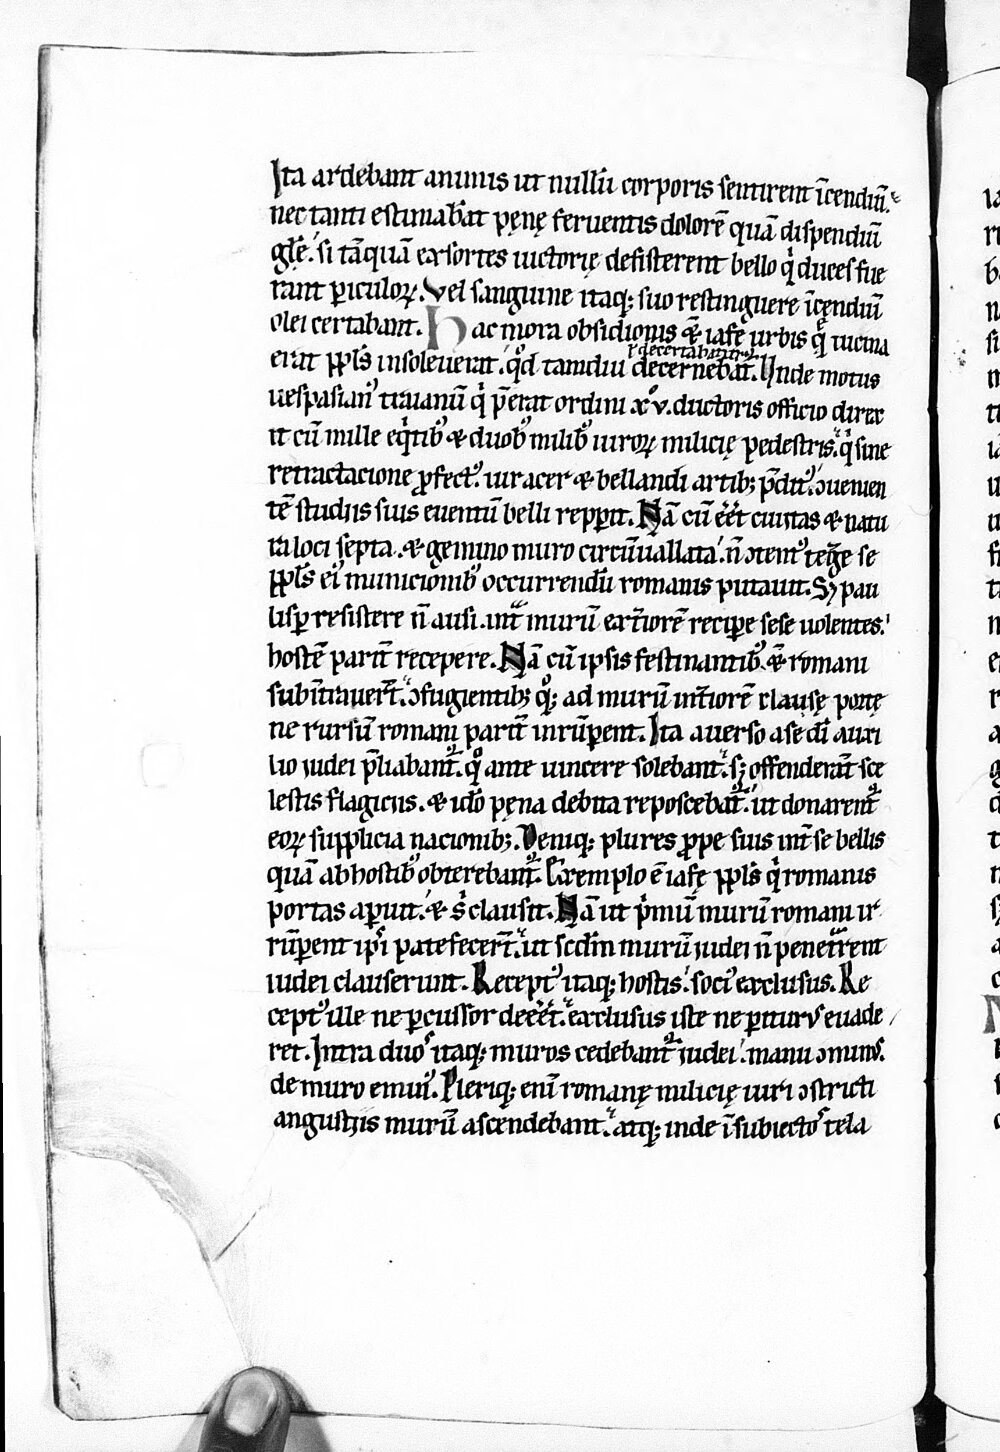 Ita ardebant animis ut nullū corporis sentirent īcendiū.
nec tanti estimabāt pęnę feruentis dolorē quā dispendiū
głę. si tāquā exsortes uictorię desisterent bello q̇ duces fue
rant ꝑiculoꝝ. Vel sanguine itaq; suo restinguere īcendiū
olei certabant. Hac mora obsidionis & iafę urbis q̄ uicina
ł decertabatur
erat ppl's insoleuerat. qd̊ tamdiu decernebat͛. Unde motus
uespasian᷒ traianū q̇ p̄erat ordini xͦv. ductoris officio direx
it cū mille eq̇tib᷒ & duob᷒ milib᷒ uiroꝝ milicię pedestris. q̇ sine
retractacione ꝓfect᷒. uir acer & bellandi artib; p̄dit᷒. ɔuenien
tē studiis suis euentū belli repꝑit. Nā cū eēt ciuitas & natu
ra loci septa. & gemino muro circūuallata. n̄ ɔtent᷒ teg̃e se
ppl's ei᷒ municionib᷒ occurrendū romanis putauit. S; pau
lisꝑ resistere n̄ ausi. int̄ murū ext̄iorē reciꝑe sese uolentes.
hostē parit̄ recepere. Nā cū ipsis festinantib᷒ & romani
subīntrauer̄t. ɔfugientib; q;̊ ad murū int̄iorē clausę portę
ne rursū romani parit̄ inrūꝑent. Ita auerso a se dī auxi
lio iudei p̄liabant͛. q̊ ante uincere solebant. s; offenderāt sce
lestis flagiciis. & idō pęna debita reposcebat͛. ut donarent͛
eoꝝ supplicia nacionib;. Deniq; plures ꝓpe suis int̄ se bellis
quā ab hostib᷒ obterebant͛. Exemplo ē iafę ppl's q̇ romanis
portas aꝑuit. & ṡ clausit. Nā ut ṗmū murū romani ir
rūꝑent ipsi patefecer̄t. ut scd̄m murū iudei n̄ penetrent
iudei clauserunt. Recept᷒ itaq; hostis. soci᷒ exclusus. Re
cept᷒ ille ne ꝑcussor deeēt. exclusus iste ne ꝑitur᷒ euade
ret. Intra duos itaq; muros cedebant͛ iudei. manu ɔminus.
de muro emin᷒. Pleriq; enī romanę milicię uiri ɔstricti
angustiis murū ascendebant. atq; inde ī subiectos tela